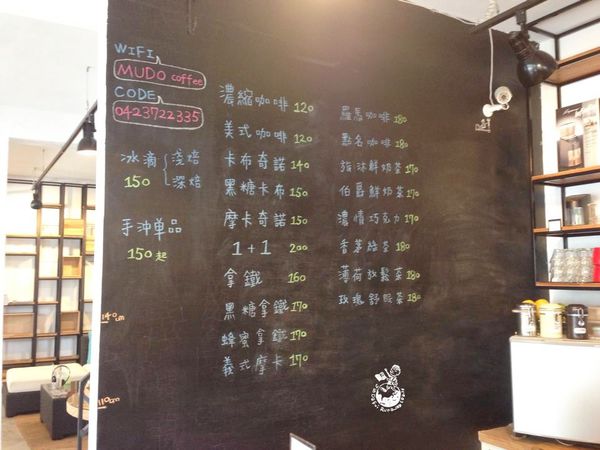 WIFI
MUDO coffee
CODE
0423722335
冰滴 淺焙
深焙
150
手沖单品
150起
140cm
110cm
濃縮咖啡 120
美式咖啡 120
卡布奇諾 140
黑糖卡布 150
摩卡奇諾 150
1+1 200
拿鐵 160
黑糖拿鐵 170
蜂蜜拿鐵 170
義式摩卡 170
羅馬咖啡 180
點名咖啡 180
鮮奶茶 170
伯爵鮮奶茶 170
濃情巧克力 170
香茅焙茶 180
薄荷放鬆茶 180
玫瑰舒眠茶 180